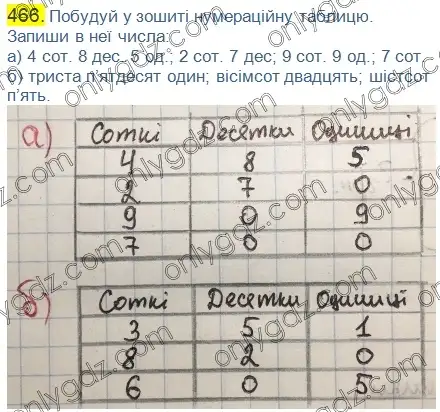 466. Побудуй у зошиті нумераційну таблицю.
Запиши в неї числа:
а) 4 сот. 8 дес. 5 од.; 2 сот. 7 дес; 9 сот. 9 од.; 7 сот.
б) триста п'ятдесят один; вісімсот двадцять; шістсот
п'ять.
а) Сотні Десятки Одиниці
4 8 5
2 7 0
9 0 9
7 0 0
б) Сотні Десятки Одиниці
3 5 1
8 2 0
6 0 5
onlygdz.com